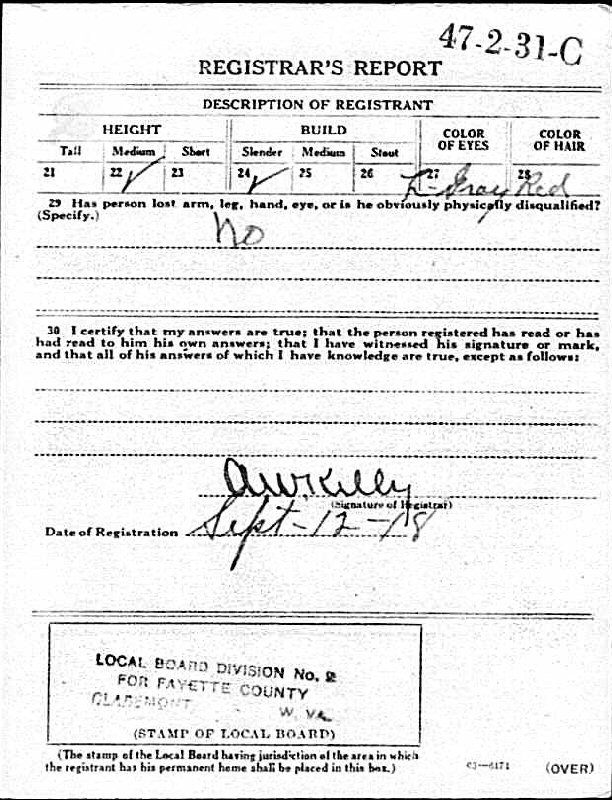 47-2-31-C
REGISTRAR'S REPORT
DESCRIPTION OF REGISTRANT
HEIGHT BUILD COLOR OF EYES COLOR OF HAIR
Tall Medium Short Slender Medium Stout
21 22 ✓ 23 24 ✓ 25 26 27 L-Gray 28 Red
29 Has person lost arm, leg, hand, eye, or is he obviously physically disqualified?
(Specify.)
No
30 I certify that my answers are true; that the person registered has read or has
had read to him his own answers; that I have witnessed his signature or mark,
and that all of his answers of which I have knowledge are true, except as follows:
A.W. Kelly
(Signature of Registrar)
Date of Registration Sept-12-18
LOCAL BOARD DIVISION No. 2
FOR FAYETTE COUNTY
CLAREMONT W. VA.
(STAMP OF LOCAL BOARD)
(The stamp of the Local Board having jurisdiction of the area in which
the registrant has his permanent home shall be placed in this box.)
03—6171 (OVER)